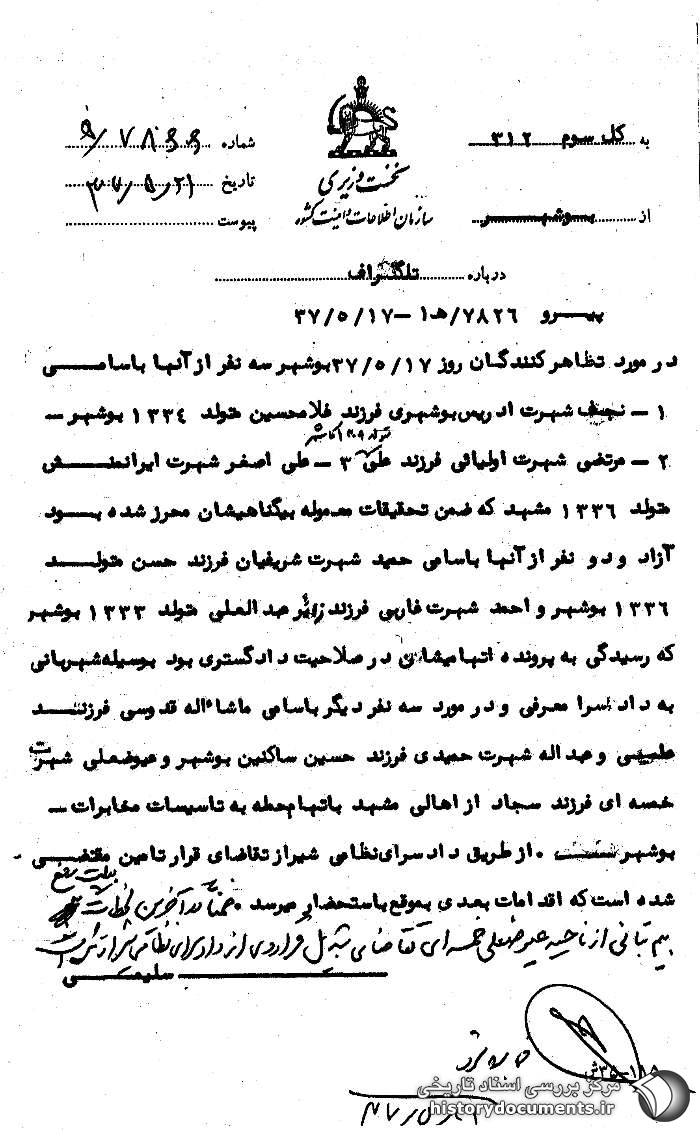 به کل سوم ۳۱۲
نخست وزیری
شماره ۹/۷۸۶۶
سازمان اطلاعات و امنیت کشور
تاریخ ۳۷/۵/۲۱
از بوشهر
پیوست
درباره تلگراف
پیرو ۷۸۲۶/ه۱ – ۳۷/۵/۱۷
در مورد تظاهر کنندگان روز ۳۷/۵/۱۷ بوشهر سه نفر از آنها باسامی
۱ – نجف شهرت ادریس بوشهری فرزند غلامحسین متولد ۱۳۳٤ بوشهر –
۲ – مرتضی شهرت اولیائی فرزند علی ۳ – علی اصغر شهرت ایرانمنش
متولد ۱۳۳٦ مشهد که ضمن تحقیقات معموله بیگناهیشان محرز شده بود
آزاد و دو نفر از آنها باسامی حمید شهرت شریفیان فرزند حسن متولد
۱۳۳٦ بوشهر و احمد شهرت فاربی فرزند زایر عبدالعلی متولد ۱۳۳۳ بوشهر
که رسیدگی به پرونده اتهامیشان در صلاحیت دادگستری بود بوسیله شهربانی
به دادسرا معرفی و در مورد سه نفر دیگر باسامی ماشاءاله قدوسی فرزند
و عبداله شهرت حمیدی فرزند حسین ساکنین بوشهر و عیوضعلی شهرت
خمسه ای فرزند سجاد از اهالی مشهد باتهام حمله به تاسیسات مخابرات –
بوشهر . از طریق دادسرای نظامی شیراز تقاضای قرار تامین مقتضی
شده است که اقدامات بعدی بموقع باستحضار میرسد . ضمنا در آخرین لحظات بعلت رفع
بیم تبانی از ناحیه عیوضعلی خمسه ای تقاضای تبدیل قرار وی از دادسرای نظامی شیراز شده است
سلیمی
۳۵-۱۱۸ش
مرکز بررسی اسناد تاریخی
historydocuments.ir